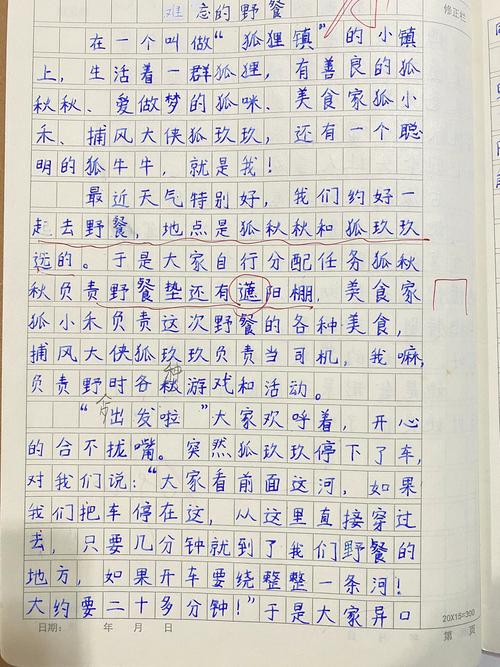 难忘的野餐
修正栏
在一个叫做“狐狸镇”的小镇
上，生活着一群狐狸，有善良的狐
秋秋、爱做梦的狐咪、美食家狐小
禾、捕风大侠狐玖玖，还有一个聪
明的狐牛牛，就是我！
最近天气特别好，我们约好一
起去野餐，地点是狐秋秋和狐玖玖
选的。于是大家自行分配任务狐秋
秋负责野餐垫还有遮阳棚，美食家
狐小禾负责这次野餐的各种美食，
捕风大侠狐玖玖负责当司机，我嘛，
负责野时各种游戏和活动。
“出发啦”大家欢呼着，开心
的合不拢嘴。突然狐玖玖停下了车，
对我们说：“大家看前面这河，如果
我们把车停在这，从这里直接穿过
去，只要几分钟就到了我们野餐的
地方，如果开车要绕整整一条河！
大约要二十多分钟！”于是大家异口
20X15=300
日期： 年 月 日 第 页